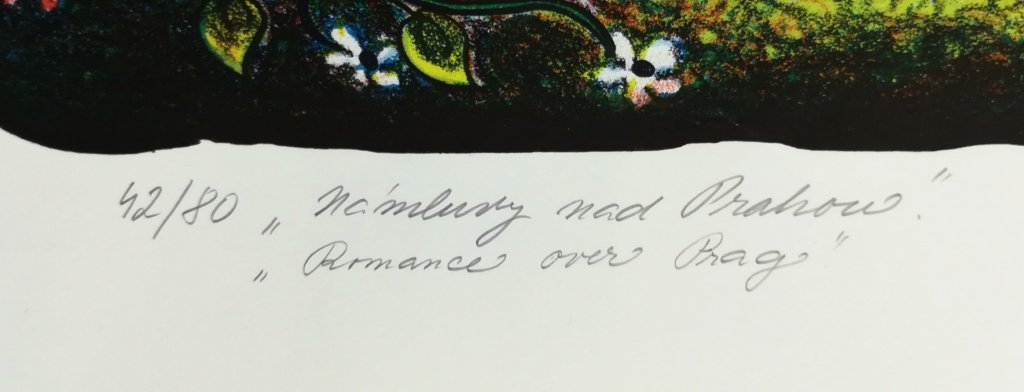 42/80 „Námluvy nad Prahou".
„Romance over Prag"